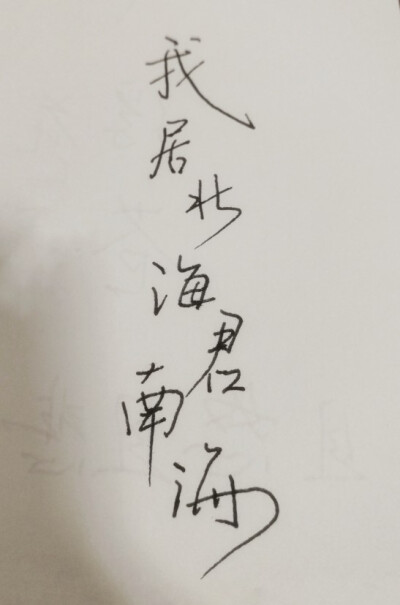 我居北海君南海